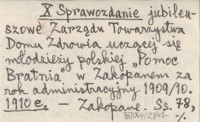 X Sprawozdanie jubileu-
szowe Zarządu Towarzystwa
Domu Zdrowia uczącej się
młodzieży polskiej „Pomoc
Bratnia" w Zakopanem za
rok administracyjny 1909/10.
1910 e. – Zakopane. Ss. 78,